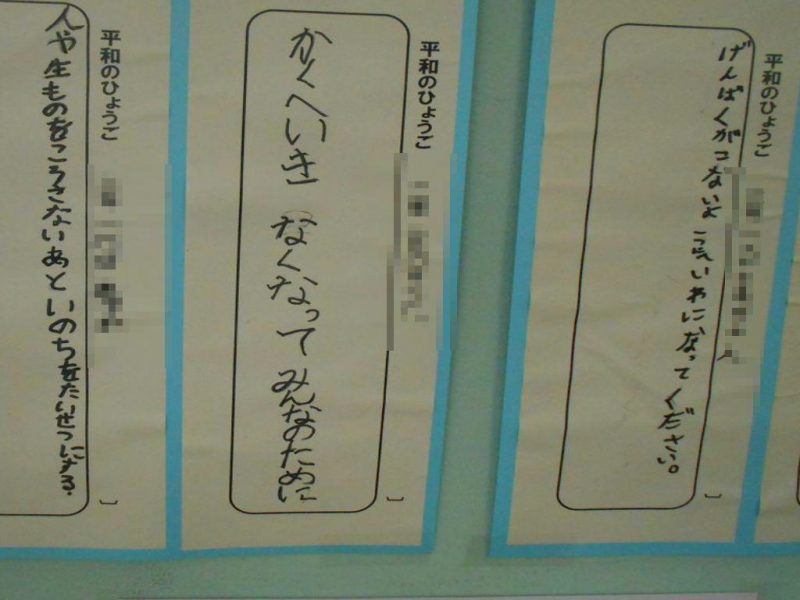 平和のひょうご
げんばくがコないよ
へいわになってください。
平和のひょうご
かくへいき なくなって みんなのために
平和のひょうご
人や生ものをころさないあといのちをたいせつにする.